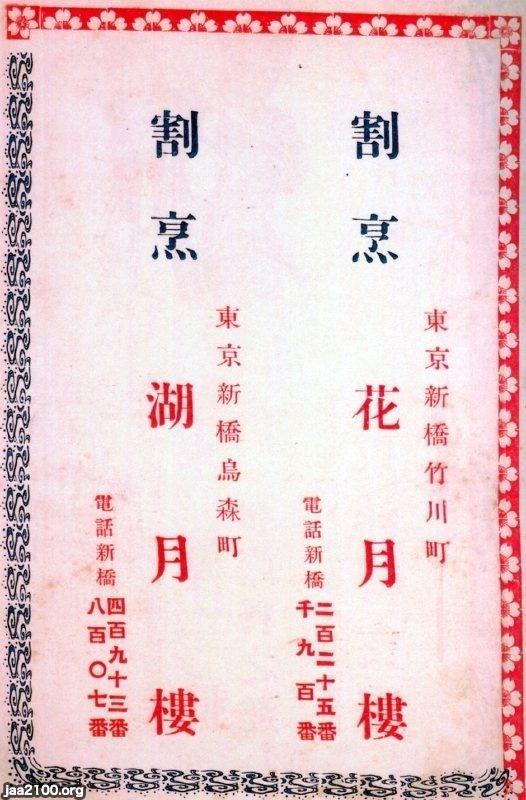 東京新橋竹川町
割烹 花月樓
電話新橋 二百二十五番
千九百番
東京新橋烏森町
割烹 湖月樓
電話新橋 四百九十三番
八百〇七番
jaa2100.org